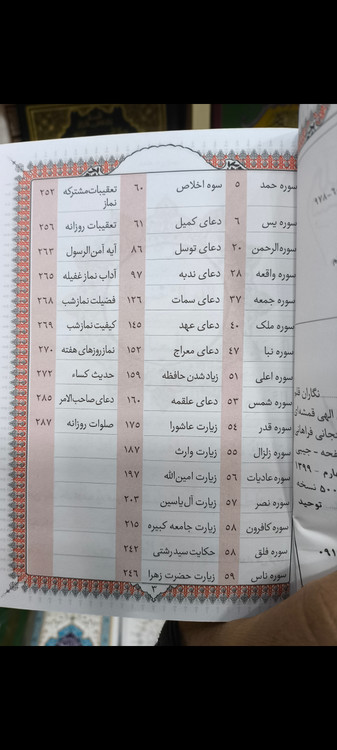 سوره حمد ۵
سوره یس ۶
سوره الرحمن ۲۰
سوره واقعه ۲۸
سوره جمعه ۳۷
سوره ملک ۴۰
سوره نبا ۴۷
سوره اعلی ۵۱
سوره شمس ۵۳
سوره قدر ۵۴
سوره زلزال ۵۵
سوره عادیات ۵۶
سوره نصر ۵۷
سوره کافرون ۵۸
سوره فلق ۵۸
سوره ناس ۵۹
سوه اخلاص ۶۰
دعای کمیل ۶۱
دعای توسل ۸۶
دعای ندبه ۹۷
دعای سمات ۱۲۶
دعای عهد ۱۴۵
دعای معراج ۱۵۲
زیاد شدن حافظه ۱۵۹
دعای علقمه ۱۶۰
زیارت عاشورا ۱۷۵
زیارت وارث ۱۸۷
زیارت امین الله ۱۹۷
زیارت آل یاسین ۲۰۳
زیارت جامعه کبیره ۲۱۵
حکایت سید رشتی ۲۴۲
زیارت حضرت زهرا ۲۴۶
تعقیبات مشترکه
نماز ۲۵۲
تعقیبات روزانه ۲۵۶
آیه آمن الرسول ۲۶۳
آداب نماز غفیله ۲۶۵
فضیلت نماز شب ۲۶۸
کیفیت نماز شب ۲۶۹
نماز روزهای هفته ۲۷۰
حدیث کساء ۲۷۲
دعای صاحب الامر ۲۸۵
صلوات روزانه ۲۸۷
نگاران
الهی قمشه‌ای
جیبی
۱۳۹۹
نسخه
توحید
۰۹۱